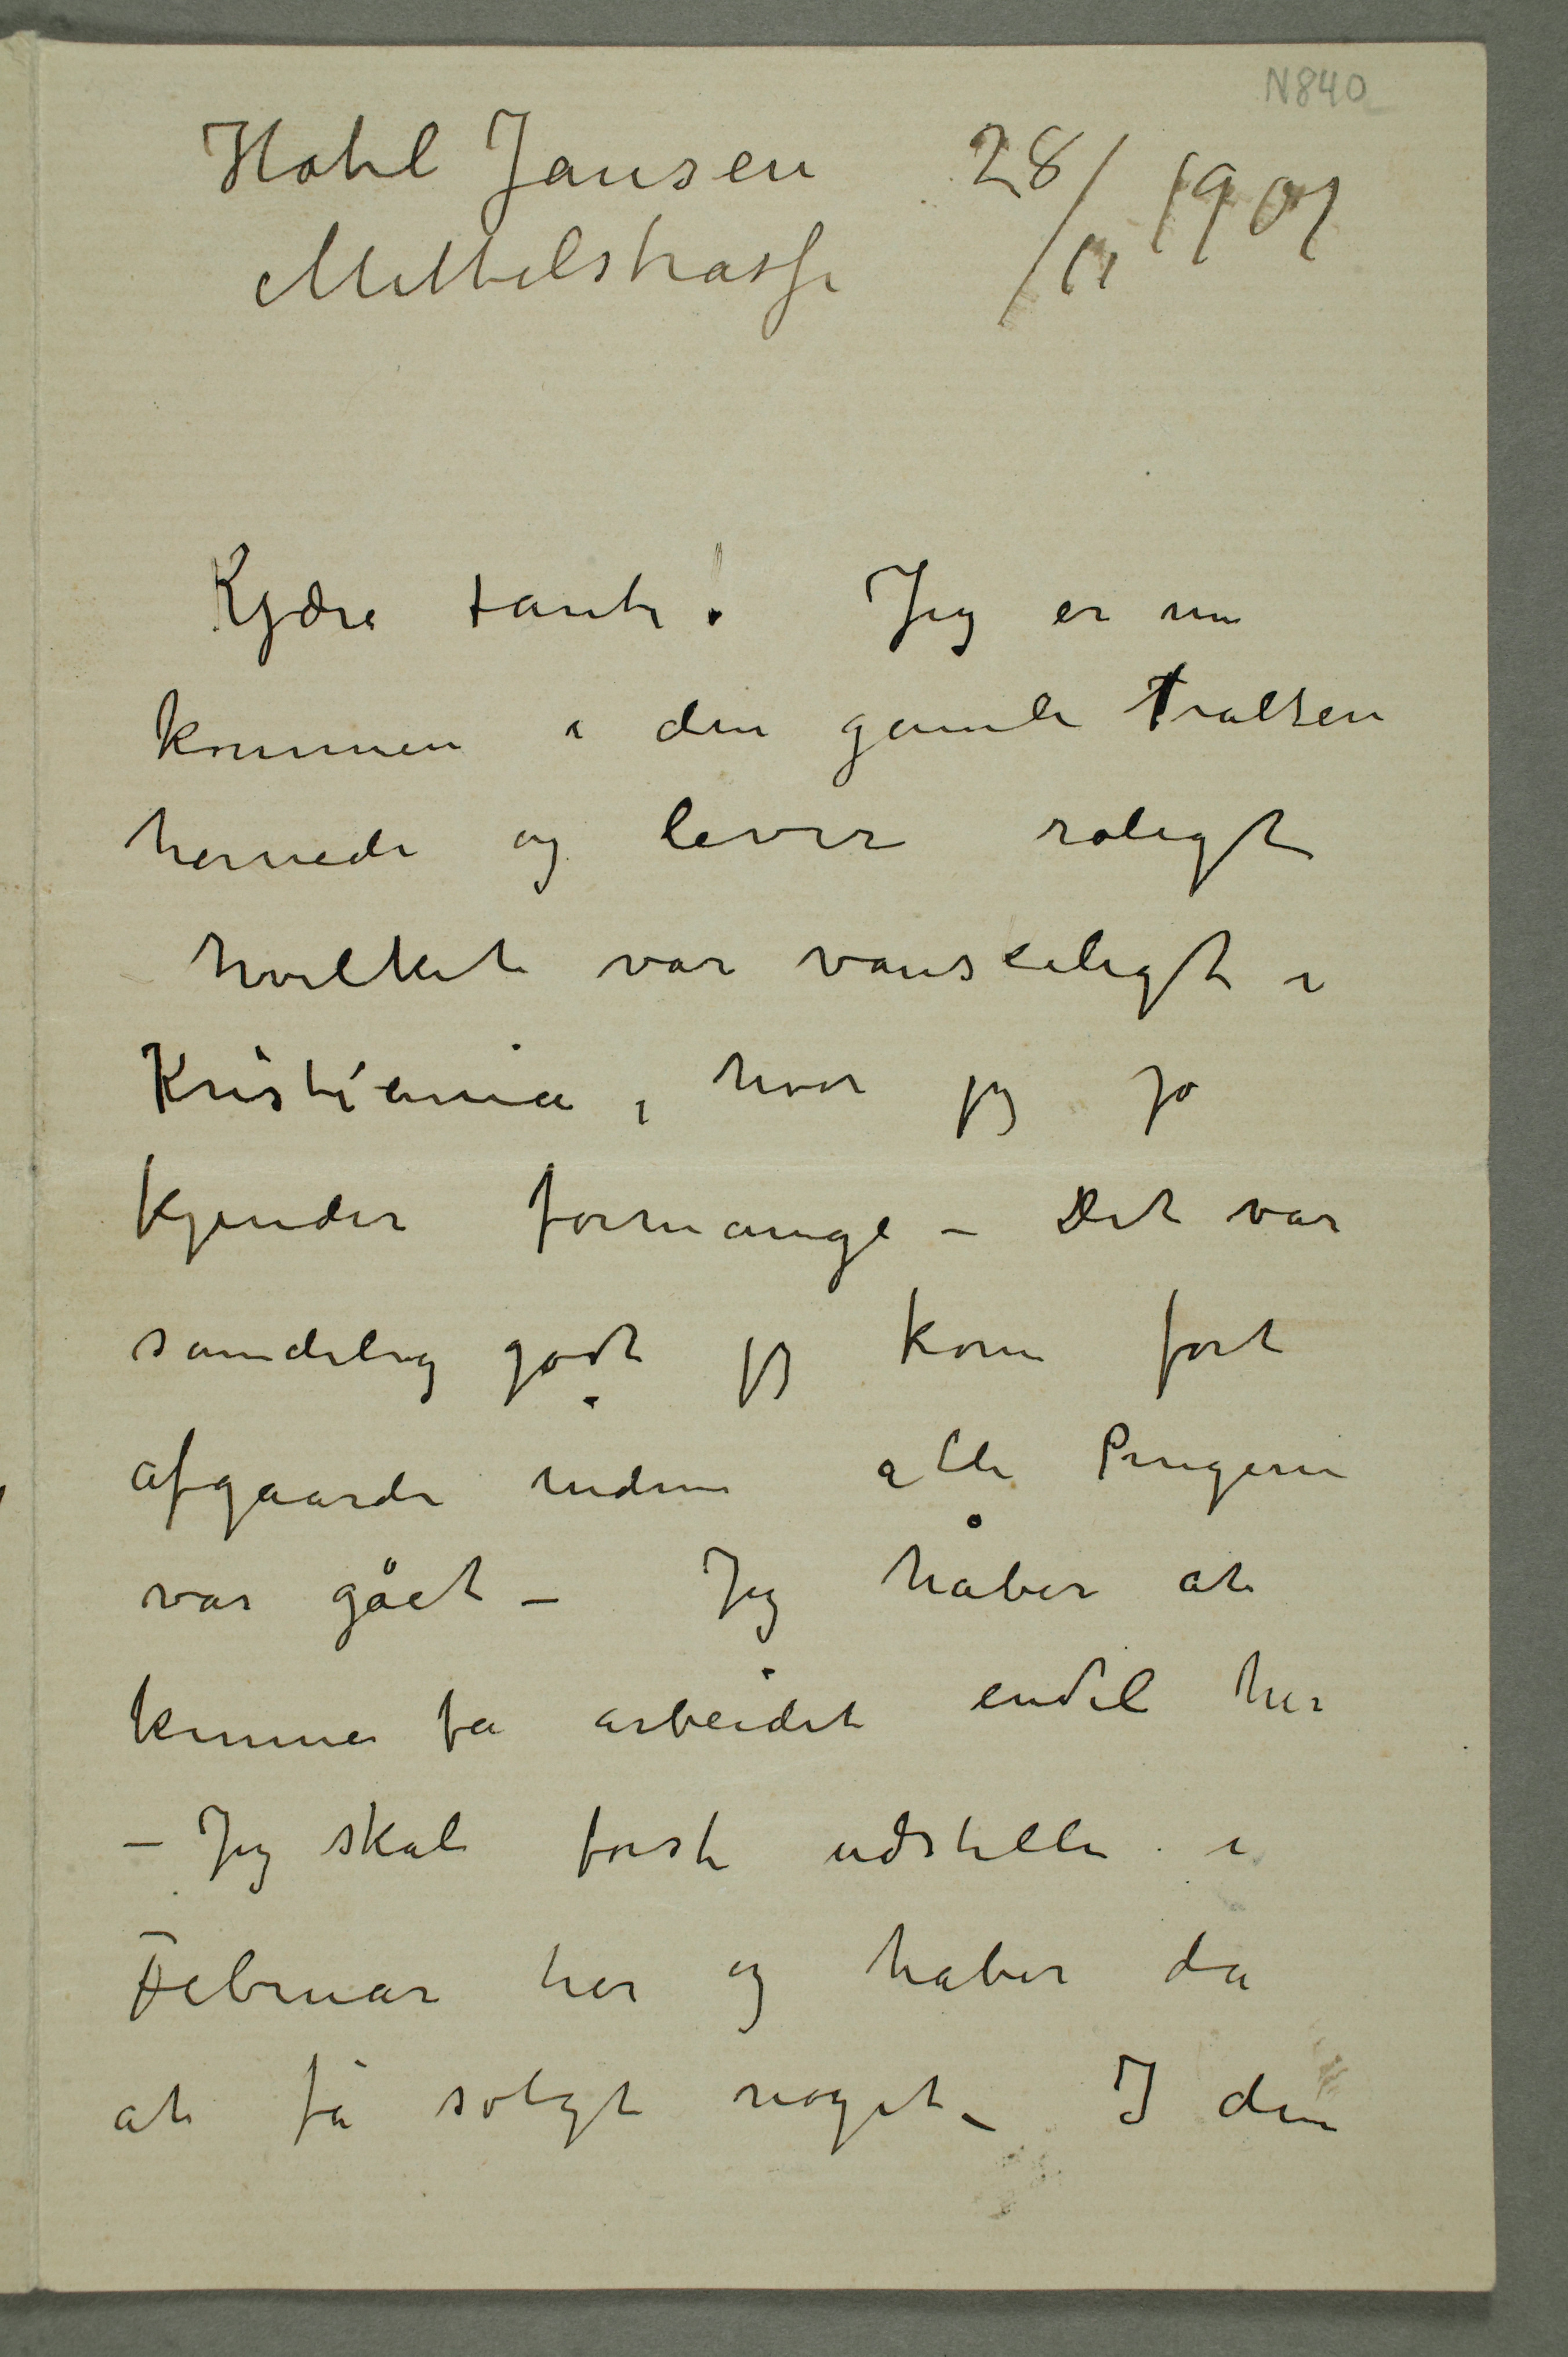 N840
Hotel Jansen 28/11 1901
Mittelstrasse
Kjære tante! Jeg er nu
kommen i den gamle Tralten
hernede og lever roligt
hvilket var vanskeligt i
Kristiania, hvor jeg jo
kjender formange – Det var
sandelig godt jeg kom fort
afgaarde inden alle Pengene
var gået – Jeg håber at
kunne få arbeidet endel her
– Jeg skal først udstille i
Februar her og håber da
at få solgt noget – I den